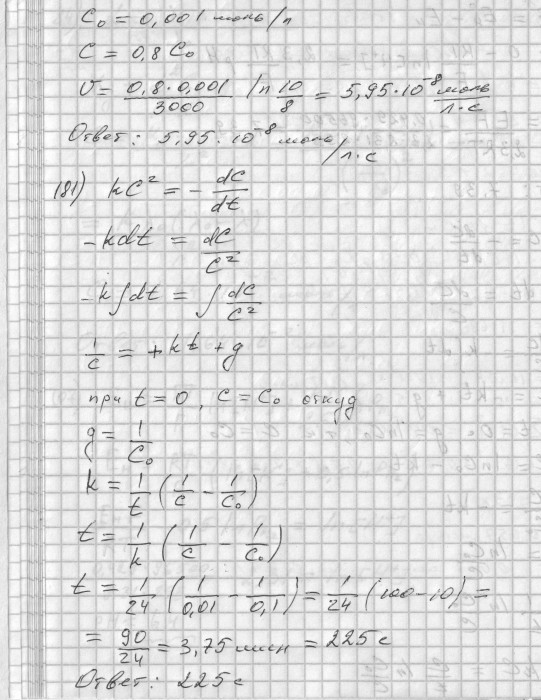 C₀ = 0,001 моль/л
C = 0,8 C₀
V = (0,8 · 0,001)/3000 ln 10/8 = 5,95 · 10⁻⁸ моль/(л·с)
Ответ: 5,95 · 10⁻⁸ моль/л·с
181) kC² = - dC/dt
-kdt = dC/C²
-k∫dt = ∫ dC/C²
1/C = +kt + g
при t = 0, C = C₀ откуд
g = 1/C₀
k = 1/t (1/C - 1/C₀)
t = 1/k (1/C - 1/C₀)
t = 1/24 (1/0,01 - 1/0,1) = 1/24 (100 - 10) =
= 90/24 = 3,75 мин = 225 с
Ответ: 225 с